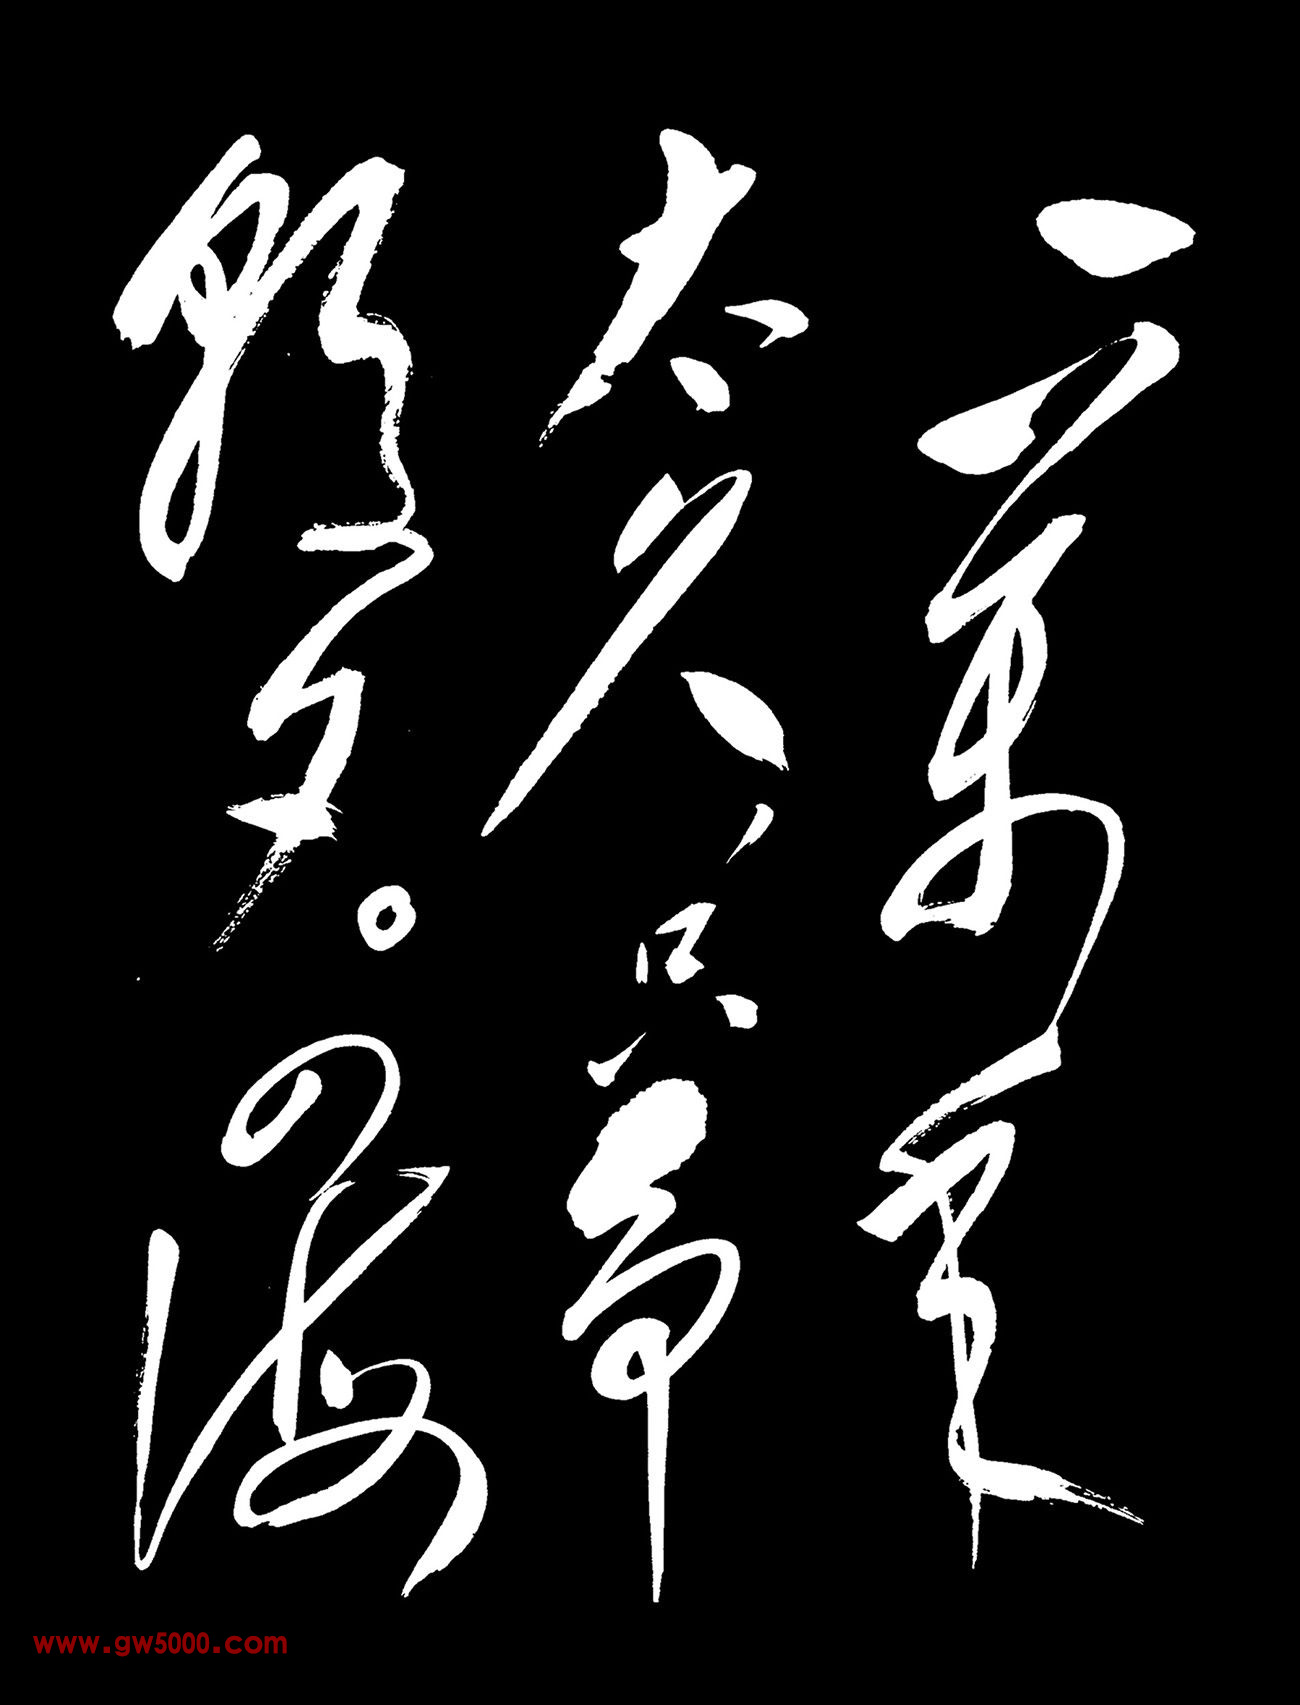 一萬年
太久，只爭
朝夕。四海
www.gw5000.com